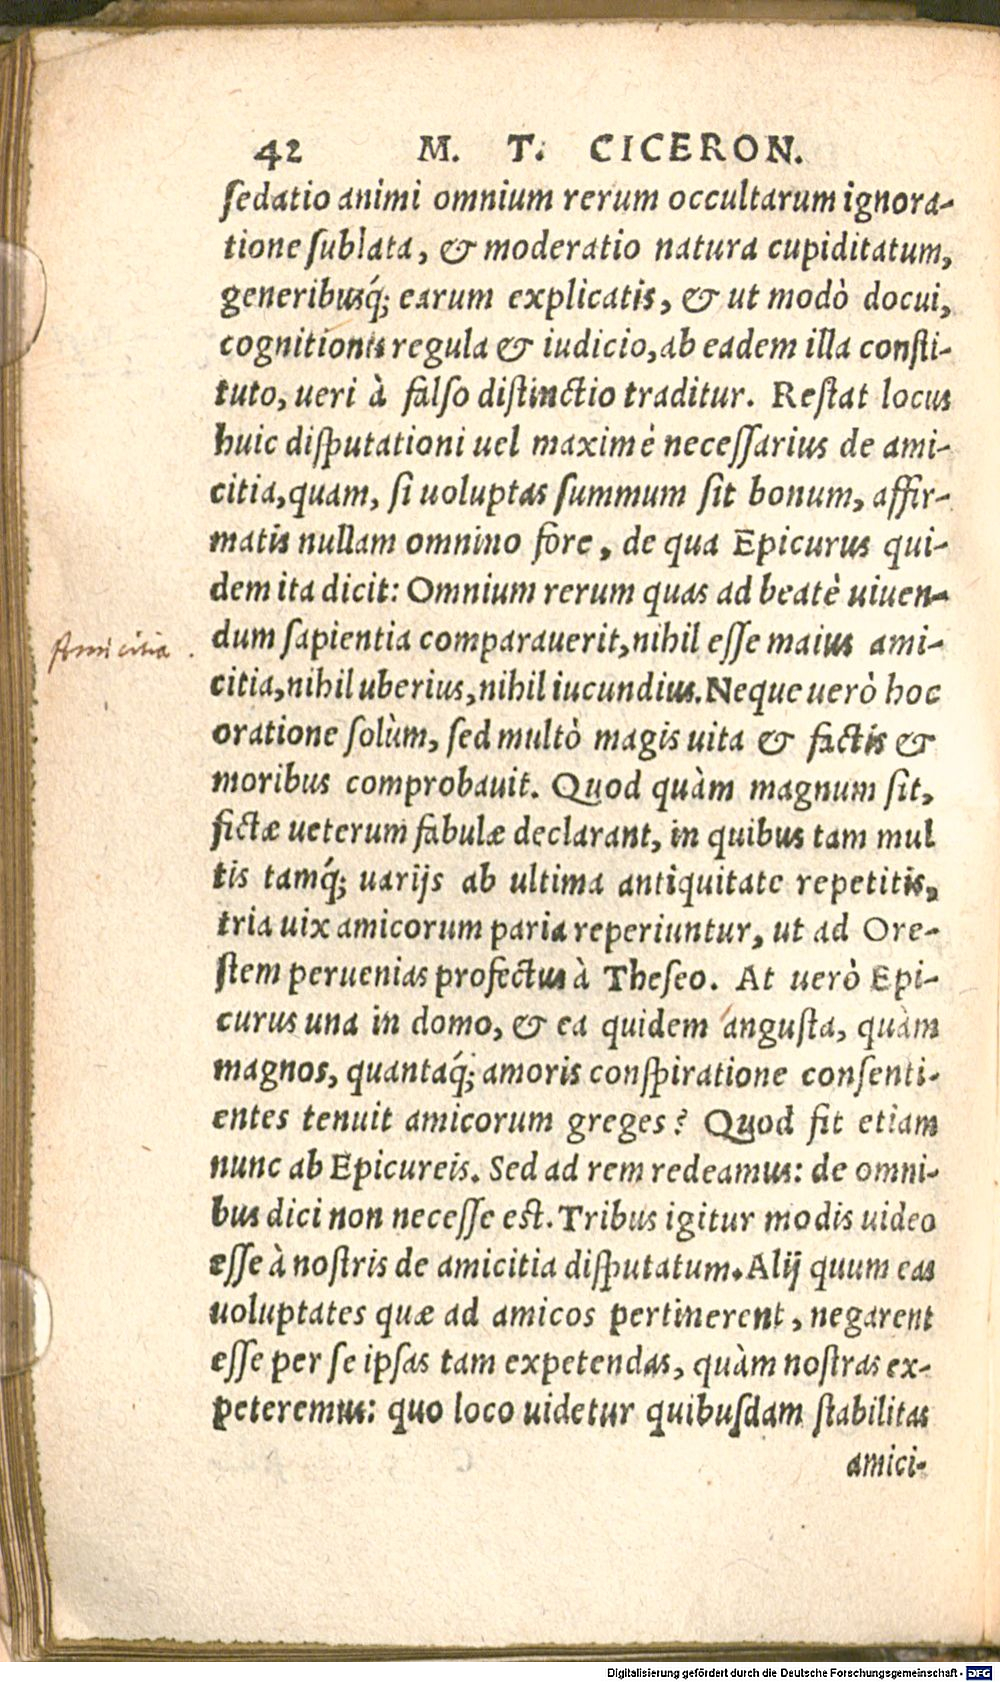 42 M. T. CICERON.
sedatio animi omnium rerum occultarum ignora-
tione sublata, & moderatio natura cupiditatum,
generibusq́; earum explicatis, & ut modò docui,
cognitionis regula & iudicio, ab eadem illa consti-
tuto, ueri à falso distinctio traditur. Restat locus
huic disputationi uel maximè necessarius de ami-
citia, quam, si uoluptas summum sit bonum, affir-
matis nullam omnino fore, de qua Epicurus qui-
dem ita dicit: Omnium rerum quas ad beatè uiuen-
dum sapientia comparauerit, nihil esse maius ami-
citia, nihil uberius, nihil iucundius. Neque uerò hoc
oratione solùm, sed multò magis uita & factis &
moribus comprobauit. Quod quàm magnum sit,
fictæ ueterum fabulæ declarant, in quibus tam mul
tis tamq́; uarijs ab ultima antiquitate repetitis,
tria uix amicorum paria reperiuntur, ut ad Ore-
stem peruenias profectus à Theseo. At uerò Epi-
curus una in domo, & ea quidem angusta, quàm
magnos, quantaq́; amoris conspiratione consenti-
entes tenuit amicorum greges? Quod fit etiam
nunc ab Epicureis. Sed ad rem redeamus: de omni-
bus dici non necesse est. Tribus igitur modis uideo
esse à nostris de amicitia disputatum. Alij quum eas
uoluptates quæ ad amicos pertinerent, negarent
esse per se ipsas tam expetendas, quàm nostras ex-
peteremus: quo loco uidetur quibusdam stabilitas
amici-
Amicitia.
Digitalisierung gefördert durch die Deutsche Forschungsgemeinschaft - DFG